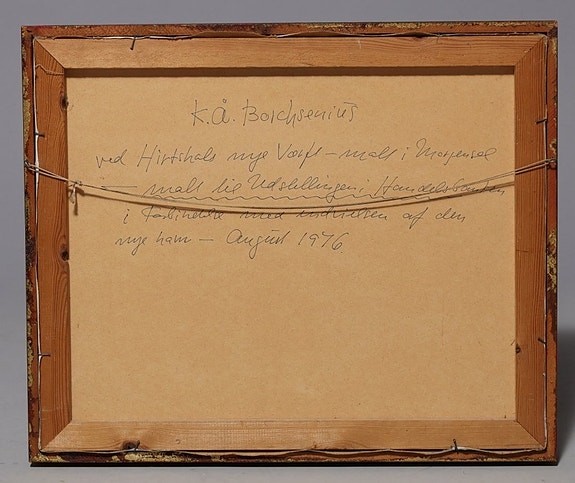 K.Å. Borchsenius
ved Hirtshals nye Værft - malt i Morgensol
- malt til Udstillingen i Handelsbanken
i forbindelse med indvielsen af den
nye havn - August 1976